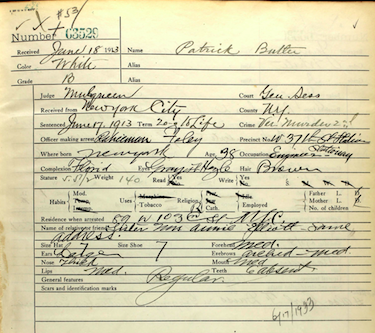 #53
Number 63529
Received June 18 1913 Name Patrick Butler
Color White Alias
Grade B Alias
Judge Mulqueen Court Gen Sess
Received from New York City County N.Y.
Sentenced June 17, 1913 Term 20 yrs to Life Crime Murder 2nd
Officer making arrest Policeman Foley Precinct No. W. 37th St Station
Where born New York Age 38 Occupation Engineer Stationary
Complexion Florid Eyes Hair Brown
Stature Weight 140 Read Yes No Write Yes No
Habits Mod. Int. Uses Tobacco Yes No Married Single Father L. D. Mother L. D. No. of children
Residence when arrested 59 W 103 St N.Y.C.
Name of relative or friend Sister Mrs Annie Elliott Same
address.
Size Hat 7 Size Shoe 7 Forehead Med.
Ears Large Eyebrows Arched - Med
Nose Thick Mouth Med
Lips Med. Teeth 6 absent
General features Regular
Scars and identification marks
6/17/1933